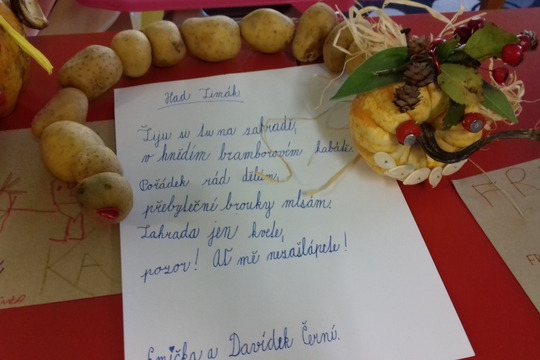 Had Zimák
Žiju si tu na zahradě,
v hnědém bramborovém kabátě.
Pořádek rád dělám,
přebytečné brouky mlsám.
Zahrada jen kvete,
pozor! Ať mě nezašlápete!
Emička a Davídek Černí.
KA
FR